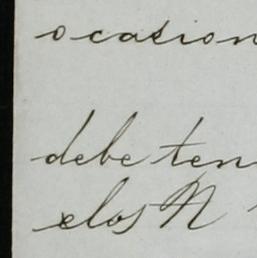 ocasion
debe ten
elos N